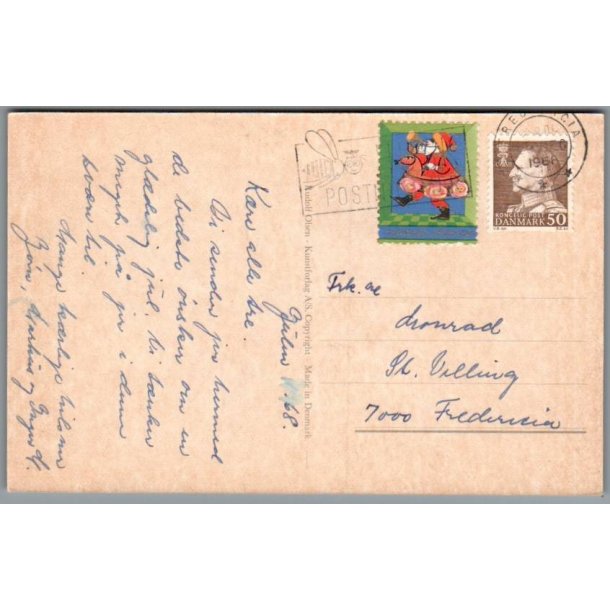 Kære alle tre.
Vi sender jer hermed
de bedste ønsker om en
glædelig jul. Vi tænker
meget på jer i denne
svære tid.
Mange kærlige hilsner
Bjørn, og Inger
Julen 68.
Rudolf Olsen - Kunstforlag A/S. Copyright Made in Denmark
POST
FREDERICIA
KONGELIG POST
DANMARK 50
Frk.
St. Velling
7000 Fredericia